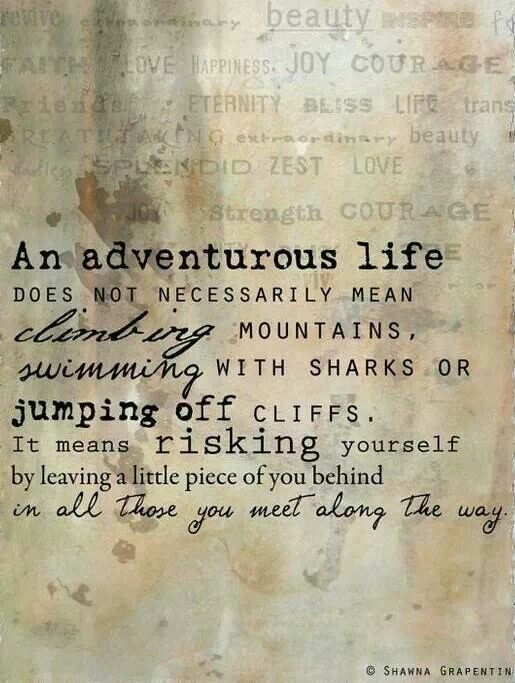 revive extraordinary beauty INSPIRE
FAITH LOVE HAPPINESS JOY COURAGE
Friends ETERNITY BLISS LIFE trans
BREATHTAKING extraordinary beauty
endless SPLENDID ZEST LOVE
JOY Strength COURAGE
An adventurous life
DOES NOT NECESSARILY MEAN
climbing MOUNTAINS,
swimming WITH SHARKS OR
jumping off CLIFFS.
It means risking yourself
by leaving a little piece of you behind
in all those you meet along the way.
© SHAWNA GRAPENTIN